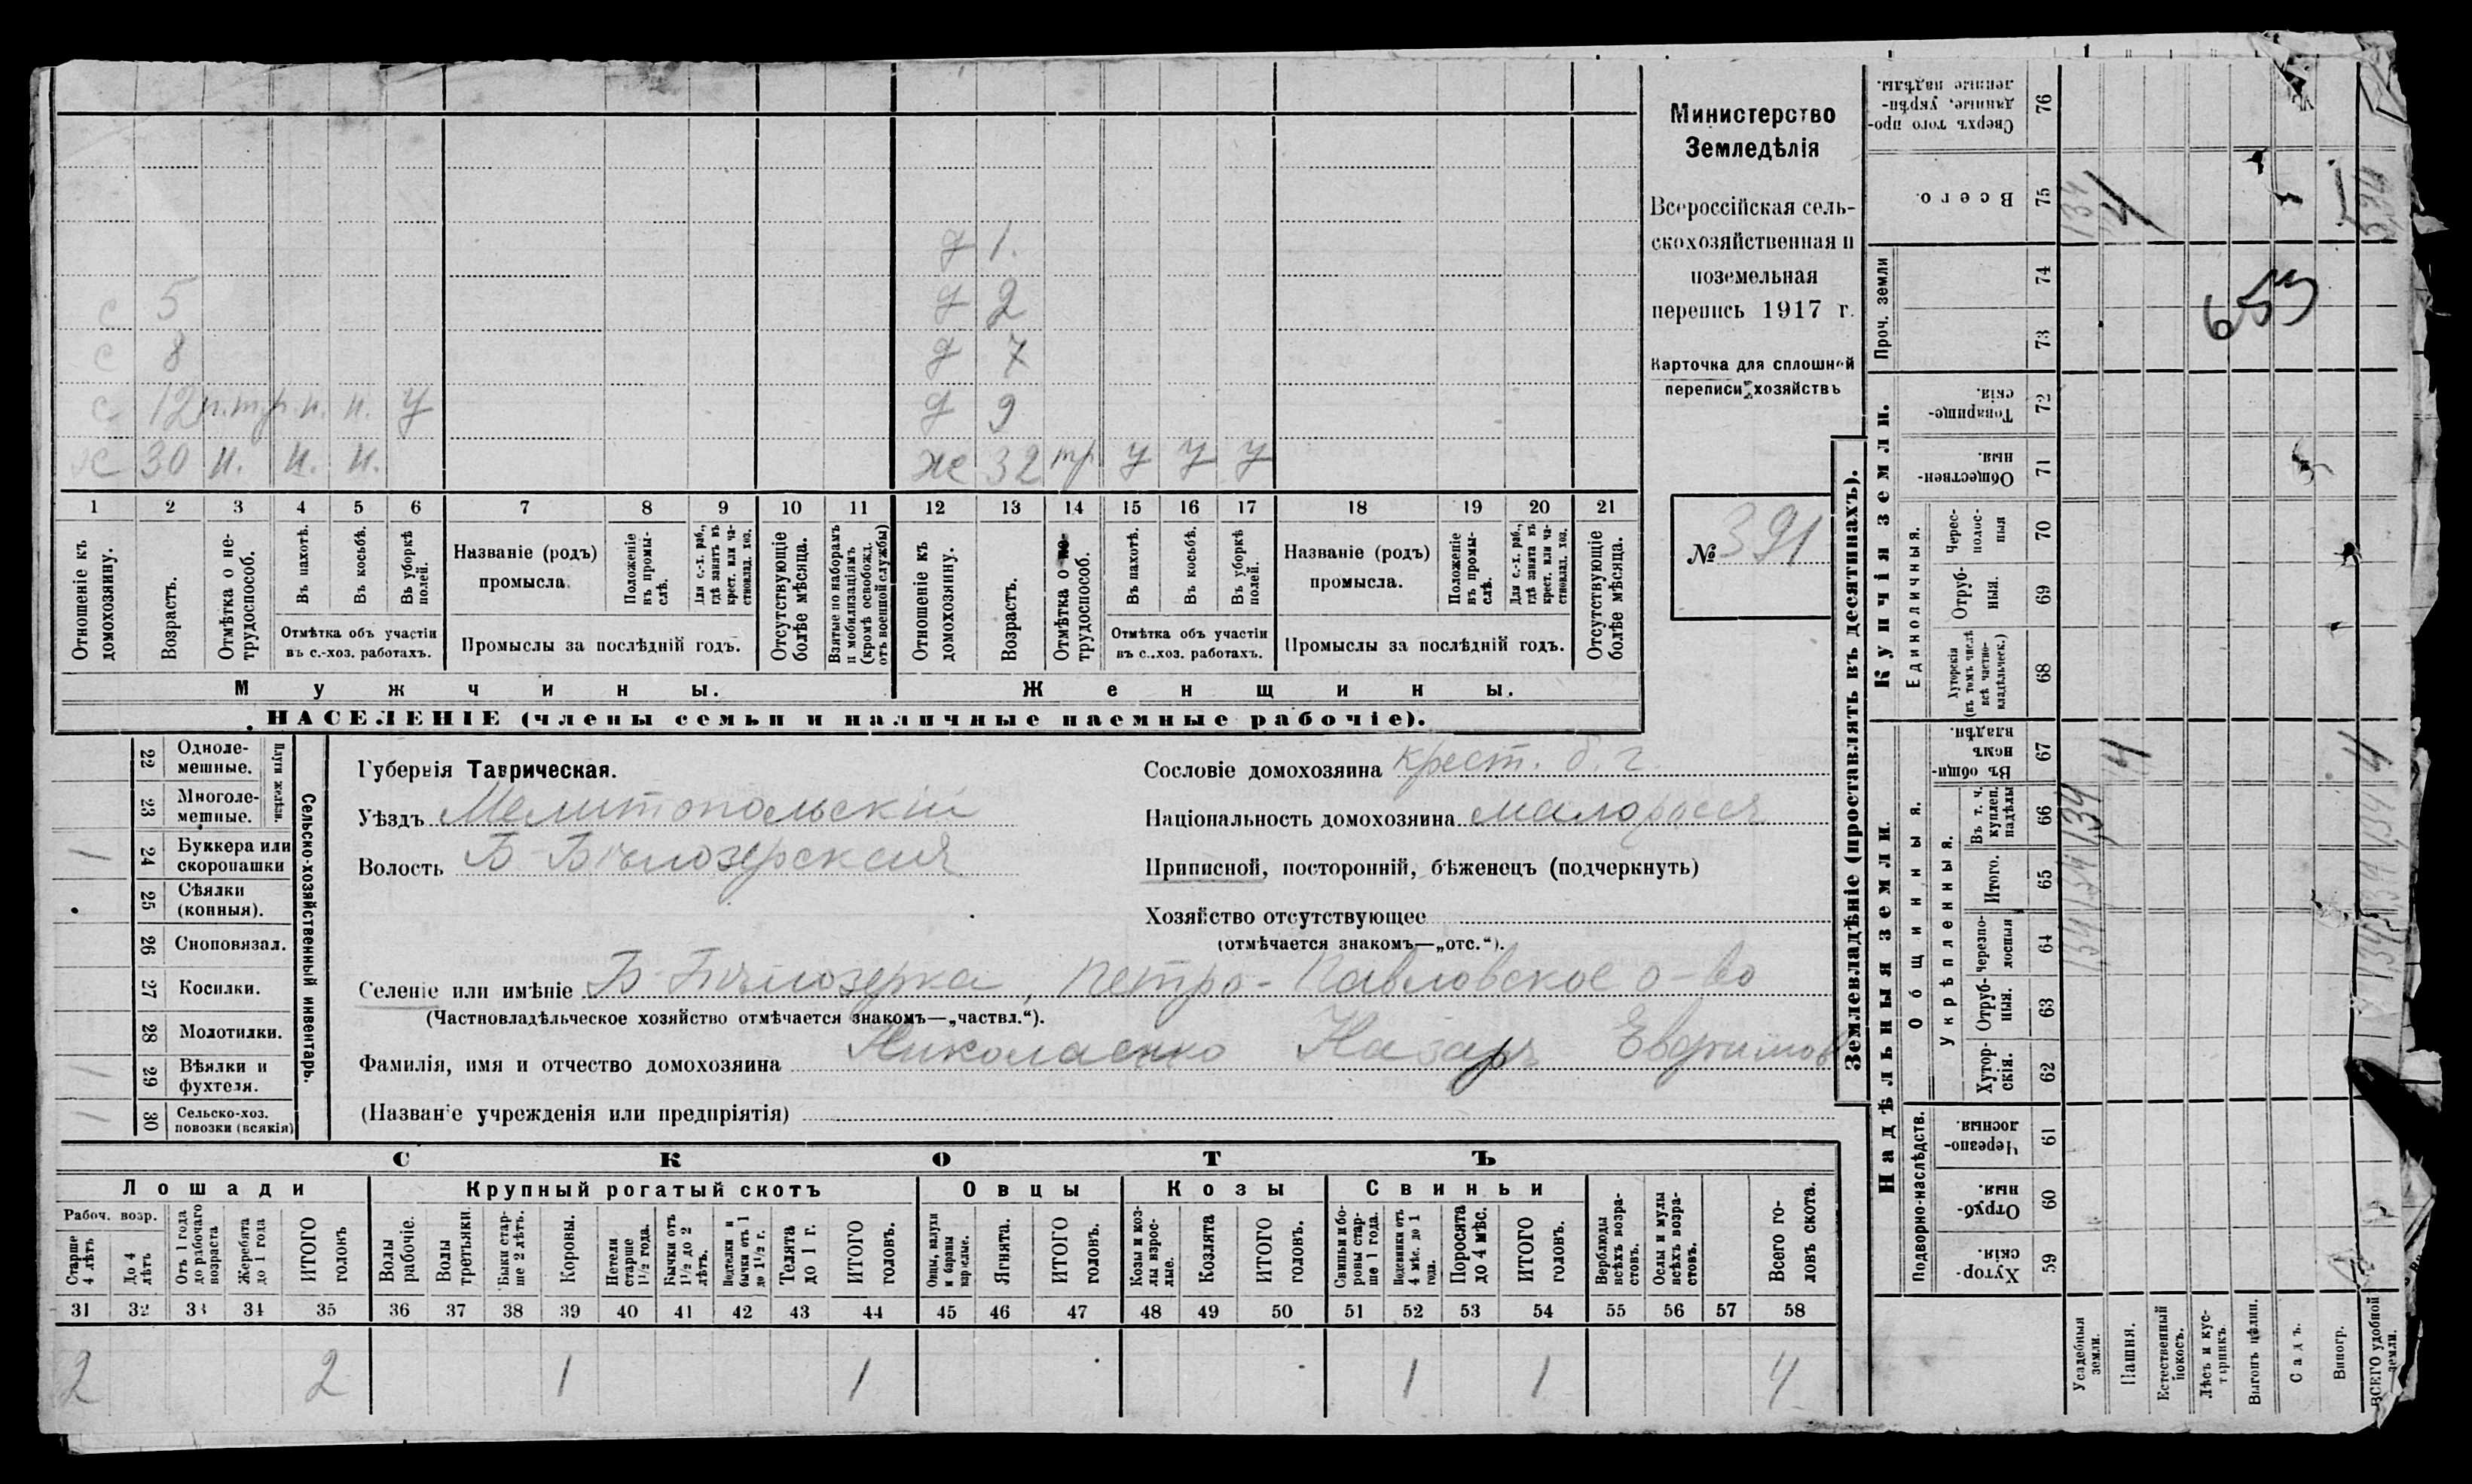 Министерство
Земледѣлія
Всероссійская сель-
скохозяйственная и
поземельная
перепись 1917 г.
Карточка для сплошной
переписи хозяйствъ
№ 391
д 1.
с 5 д 2
с 8 д 7
с 12 п. тр. н. н. у д 9
х 30 н. н. н. ж 32 тр у у у
1 2 3 4 5 6 7 8 9 10 11 12 13 14 15 16 17 18 19 20 21
Отношеніе къ домохозяину.
Возрастъ.
Отмѣтка о не-трудоспособ.
Въ пахотѣ.
Въ косьбѣ.
Въ уборкѣ полей.
Отмѣтка объ участіи
въ с.-хоз. работахъ.
Названіе (родъ)
промысла.
Положеніе въ промы-слѣ.
Для с.-х. раб., гдѣ занятъ въ крест. или ча-стновлад. хоз.
Промыслы за послѣдній годъ.
Отсутствующіе болѣе мѣсяца.
Взятые по наборамъ и мобилизаціямъ (кромѣ освобожд. отъ военной службы)
Отношеніе къ домохозяину.
Возрастъ.
Отмѣтка о не-трудоспособ.
Въ пахотѣ.
Въ косьбѣ.
Въ уборкѣ полей.
Отмѣтка объ участіи
въ с.-хоз. работахъ.
Названіе (родъ)
промысла.
Положеніе въ промы-слѣ.
Для с.-х. раб., гдѣ занята въ крест. или ча-стновлад. хоз.
Промыслы за послѣдній годъ.
Отсутствующіе болѣе мѣсяца.
Мужчины. Женщины.
НАСЕЛЕНІЕ (члены семьи и наличные наемные рабочіе).
Сельско-хозяйственный инвентарь.
Плуги желѣзн.
22 Одноле-мешные.
23 Многоле-мешные.
1 24 Буккера или скоропашки
25 Сѣялки (конныя).
26 Сноповязал.
27 Косилки.
28 Молотилки.
1 29 Вѣялки и фухтеля.
1 30 Сельско-хоз. повозки (всякія)
Губернія Таврическая.
Уѣздъ Мелитопольскій
Волость Б-Бѣлозерская
Сословіе домохозяина крест. б. г.
Національность домохозяина малоросъ
Приписной, посторонній, бѣженецъ (подчеркнуть)
Хозяйство отсутствующее
(отмѣчается знакомъ—„отс.“).
Селеніе или имѣніе Б-Бѣлозерка, Петро-Павловское о-во
(Частновладѣльческое хозяйство отмѣчается знакомъ—„частвл.“).
Фамилія, имя и отчество домохозяина Николаенко Назаръ Евфимов
(Названіе учрежденія или предпріятія)
СКОТЪ
Лошади Крупный рогатый скотъ Овцы Козы Свиньи
Рабоч. возр.
Старше 4 лѣтъ
До 4 лѣтъ
Отъ 1 года до рабочаго возраста
Жеребята до 1 года
ИТОГО головъ
Волы рабочіе.
Волы третьяки.
Быки стар-ше 2 лѣтъ.
Коровы.
Нетели старше 1½ года.
Бычки отъ 1½ до 2 лѣтъ.
Подтелки и бычки отъ 1 до 1½ г.
Телята до 1 г.
ИТОГО головъ.
Овцы, валухи и бараны взрослые.
Ягнята.
ИТОГО головъ.
Козы и коз-лы взрос-лые.
Козлята
ИТОГО головъ.
Свиньи и бо-ровы стар-ше 1 года.
Подсвинки отъ 4 мѣс. до 1 года.
Поросята до 4 мѣс.
ИТОГО головъ.
Верблюды всѣхъ возра-стовъ.
Ослы и мулы всѣхъ возра-стовъ.
Всего го-ловъ скота.
31 32 33 34 35 36 37 38 39 40 41 42 43 44 45 46 47 48 49 50 51 52 53 54 55 56 57 58
2 2 1 1 1 1 4
Землевладѣніе (проставлять въ десятинахъ).
Надѣльныя земли. Купчія земли. Проч. земли
Подворно-наслѣдств. Общинныя. Укрѣпленныя. Единоличныя.
76 Сверхъ того про-данные, укрѣп-ленные надѣлы.
75 Всего. 134 4
74
73
653
72 Товарище-скія.
71 Обществен-ныя.
70 Черес-полос-ныя
69 Отруб-ныя.
68 Хуторскія (въ томъ числѣ всѣ частно-владѣльческ.)
67 Въ общин-номъ владѣн. 4 4
66 Въ т. ч. куплен. надѣлы 134
65 Итого. 134
64 Черезпо-лосныя 134
63 Отруб-ныя.
62 Хутор-скія.
61 Черезпо-лосныя.
60 Отруб-ныя.
59 Хутор-скія.
Усадебныя земли.
Пашня.
Естественный покосъ.
Лѣсъ и кус-тарникъ.
Выгонъ цѣлин.
Садъ.
Виногр.
ВСЕГО удобной земли.